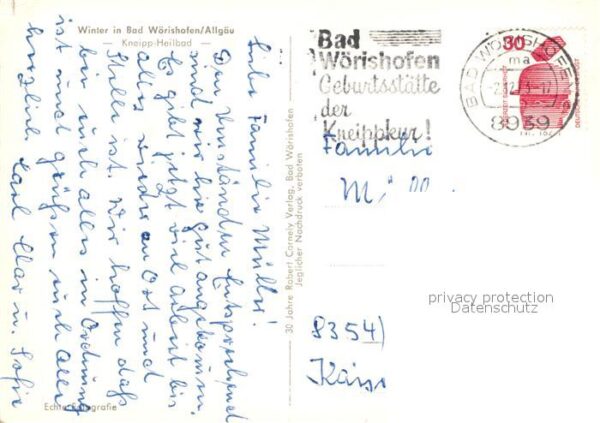 Winter in Bad Wörishofen/Allgäu
— Kneipp-Heilbad —
Liebe Familie Müller!
Den Umständen entsprechend
sind wir hier gut angekommen.
Es gibt jetzt viel Arbeit bis
alles wieder an Ort und
Stelle ist. Wir hoffen daß
bei euch alles in Ordnung
ist und grüßen euch alle
herzlich
Echte Fotografie
30 Jahre Robert Cornely Verlag, Bad Wörishofen
Jeglicher Nachdruck verboten
Bad
Wörishofen
Geburtsstätte
der
Kneippkur!
BAD WÖRISHOFEN
ma
8939
30
Familie
8354)
privacy protection
Datenschutz